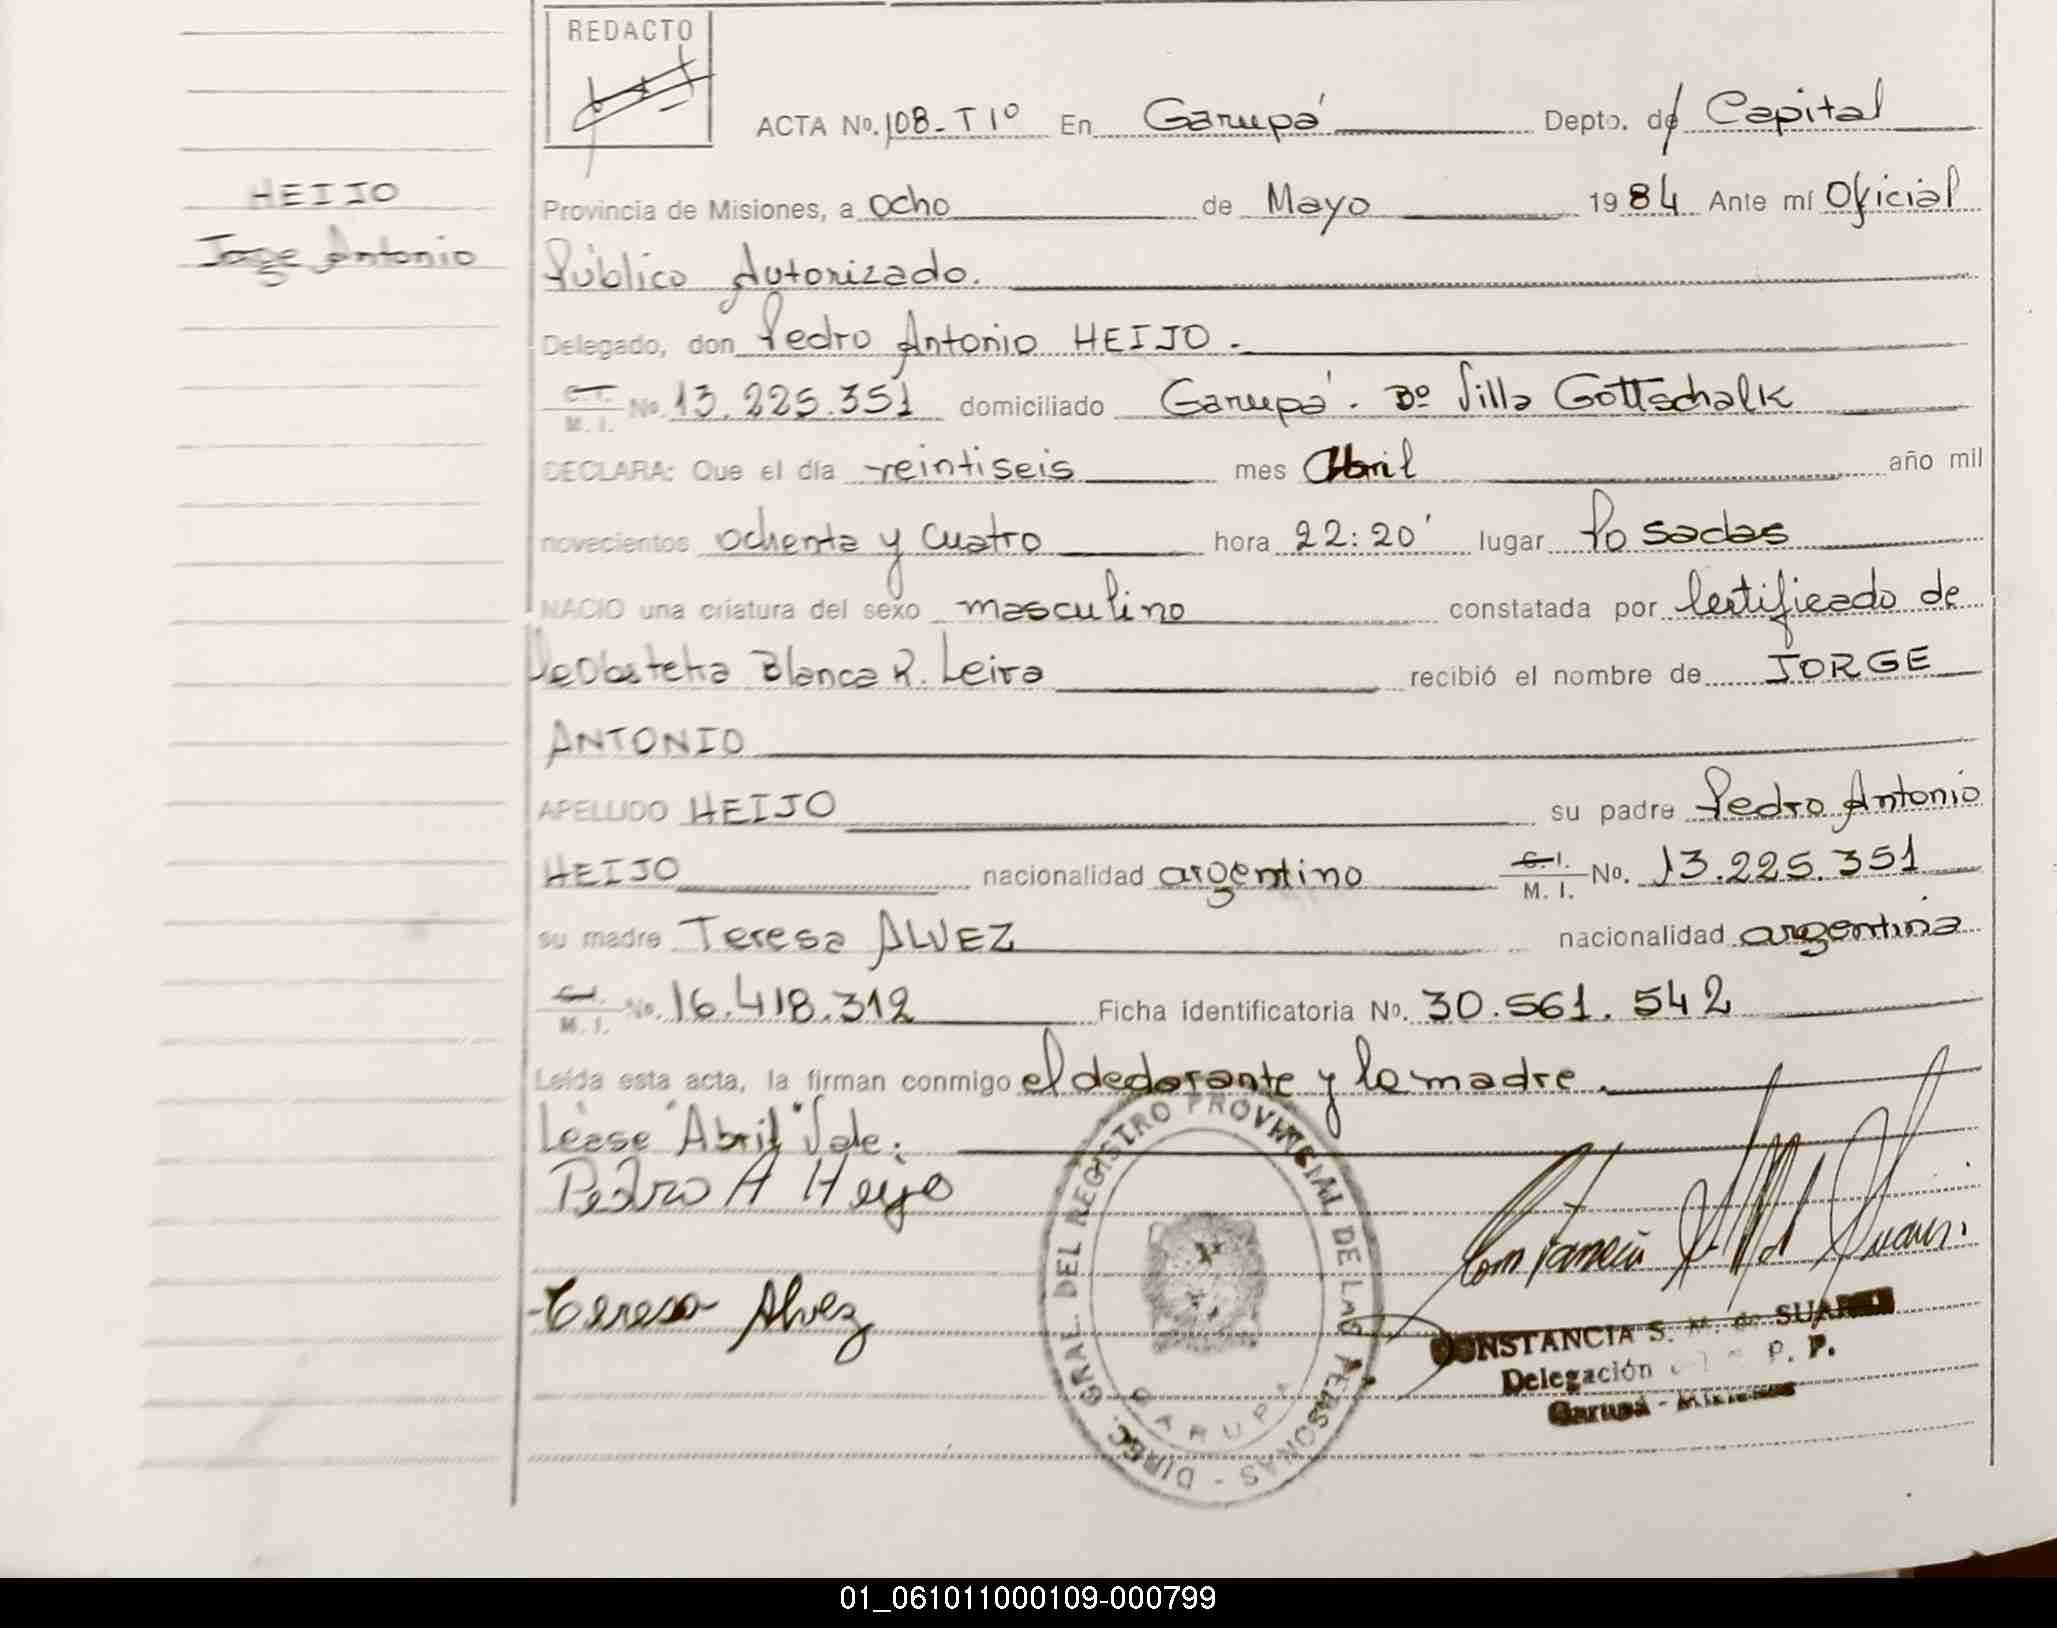 REDACTO
ACTA No. 108-T1º En Garupá Depto. de Capital
HEIJO
Jorge Antonio
Provincia de Misiones, a ocho de Mayo 1984 Ante mí Oficial
Público Autorizado.
Delegado, don Pedro Antonio HEIJO.
C.I. M. I. No. 13.225.351 domiciliado Garupá. Bº Villa Gottschalk
DECLARA: Que el día veintiseis mes Abril año mil
novecientos ochenta y cuatro hora 22:20' lugar Posadas
NACIO una criatura del sexo masculino constatada por Certificado de
Obstetra Blanca R. Leiva recibió el nombre de JORGE
ANTONIO
APELLIDO HEIJO su padre Pedro Antonio
HEIJO nacionalidad argentino C.I. M. I. No. 13.225.351
su madre Teresa ALVEZ nacionalidad argentina
C.I. M. I. No. 16.418.312 Ficha identificatoria No. 30.561.542
Leída esta acta, la firman conmigo el declarante y la madre.
Léase "Abril" Vale:
Pedro A Heijo
Teresa Alvez
DIREC. GRAL. DEL REGISTRO PROVINCIAL DE LAS PERSONAS -
GARUPA
CONSTANCIA S. M. de SUAREZ
Delegación P. P.
Garupá - Misiones
01_061011000109-000799